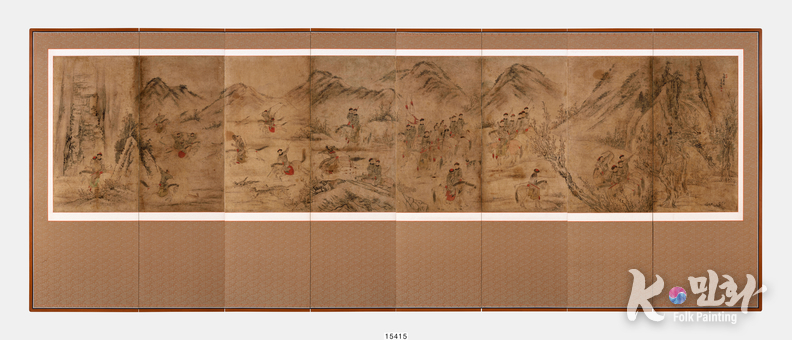 K민화
Folk Painting
15415